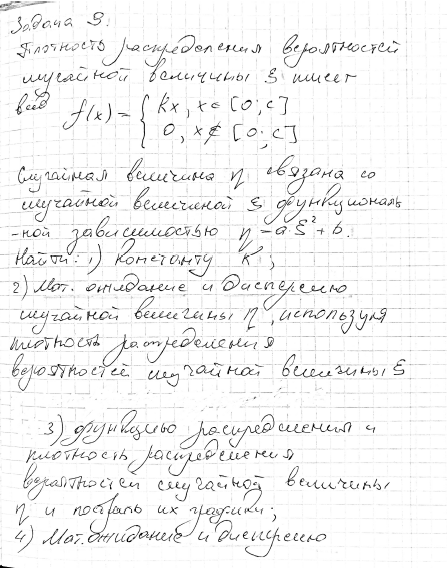 Задача 9.
Плотность распределения вероятностей
случайной величины ξ имеет
вид f(x) = { Kx, x ∈ [0; c]
0, x ∉ [0; c]
Случайная величина η связана со
случайной величиной ξ функциональ
-ной зависимостью η = a·ξ² + b.
Найти: 1) константу K;
2) Мат. ожидание и дисперсию
случайной величины η, используя
плотность распределения
вероятностей случайной величины ξ
3) функцию распределения и
плотность распределения
вероятностей случайной величины
η и построить их графики;
4) Мат. ожидание и дисперсию